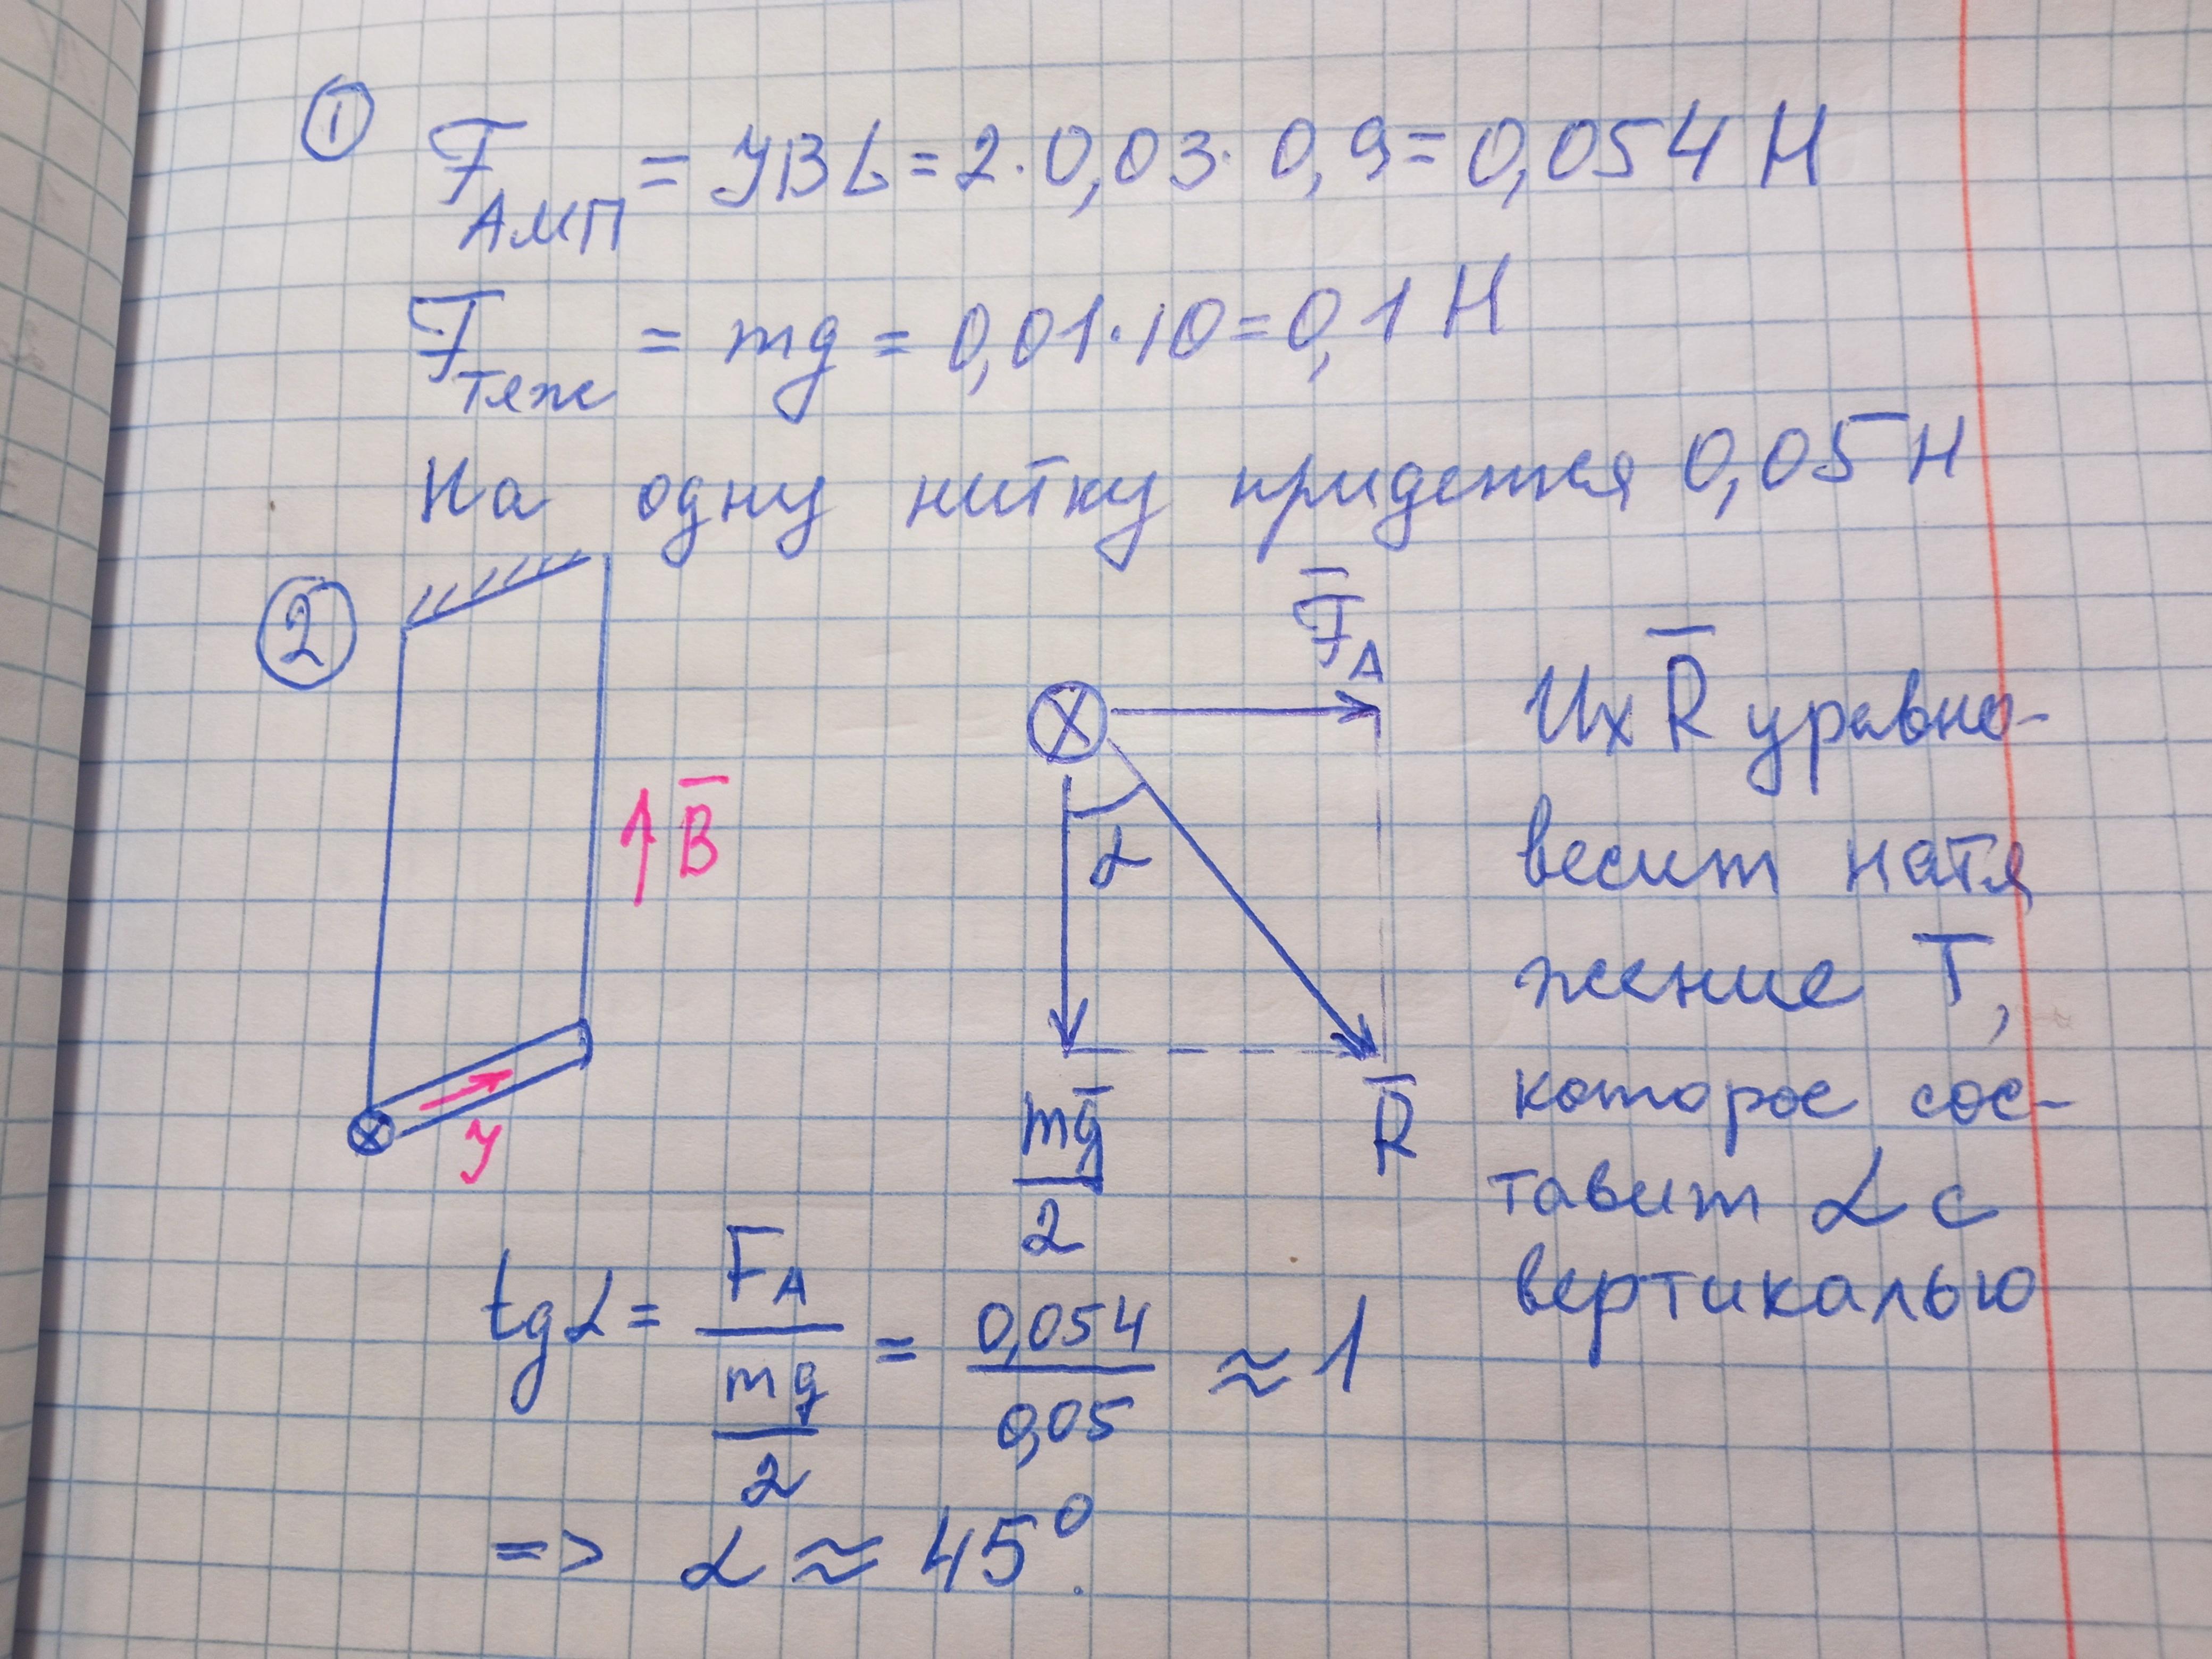 ① F АМП = УBL = 2·0,03·0,9 = 0,054 Н
F тяж = mg = 0,01·10 = 0,1 Н
На одну нитку придется 0,05 Н
②
B̅
У
F̅ А
α
mg̅/2
R̅
Их R̅ уравно-
весит натя
жение T,
которое сос-
тавит α с
вертикалью
tgα = F А / (mg/2) = 0,054/0,05 ≈ 1
=> α ≈ 45°.